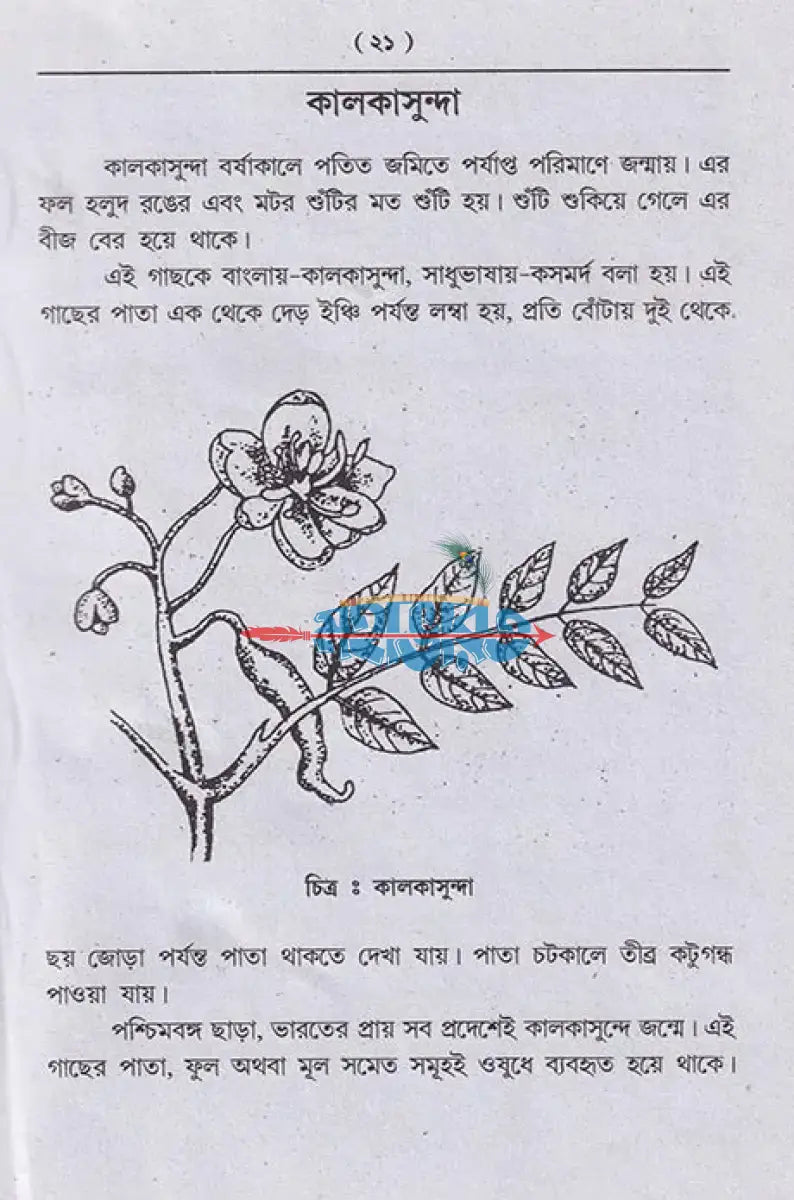 ( ২১ )
কালকাসুন্দা
কালকাসুন্দা বর্ষাকালে পতিত জমিতে পর্যাপ্ত পরিমাণে জন্মায়। এর
ফল হলুদ রঙের এবং মটর শুঁটির মত শুঁটি হয়। শুঁটি শুকিয়ে গেলে এর
বীজ বের হয়ে থাকে।
এই গাছকে বাংলায়-কালকাসুন্দা, সাধুভাষায়-কসমর্দ বলা হয়। এই
গাছের পাতা এক থেকে দেড় ইঞ্চি পর্যন্ত লম্বা হয়, প্রতি বোঁটায় দুই থেকে
চিত্র ঃ কালকাসুন্দা
ছয় জোড়া পর্যন্ত পাতা থাকতে দেখা যায়। পাতা চটকালে তীব্র কটুগন্ধ
পাওয়া যায়।
পশ্চিমবঙ্গ ছাড়া, ভারতের প্রায় সব প্রদেশেই কালকাসুন্দে জন্মে। এই
গাছের পাতা, ফুল অথবা মূল সমেত সমূহই ওষুধে ব্যবহৃত হয়ে থাকে।